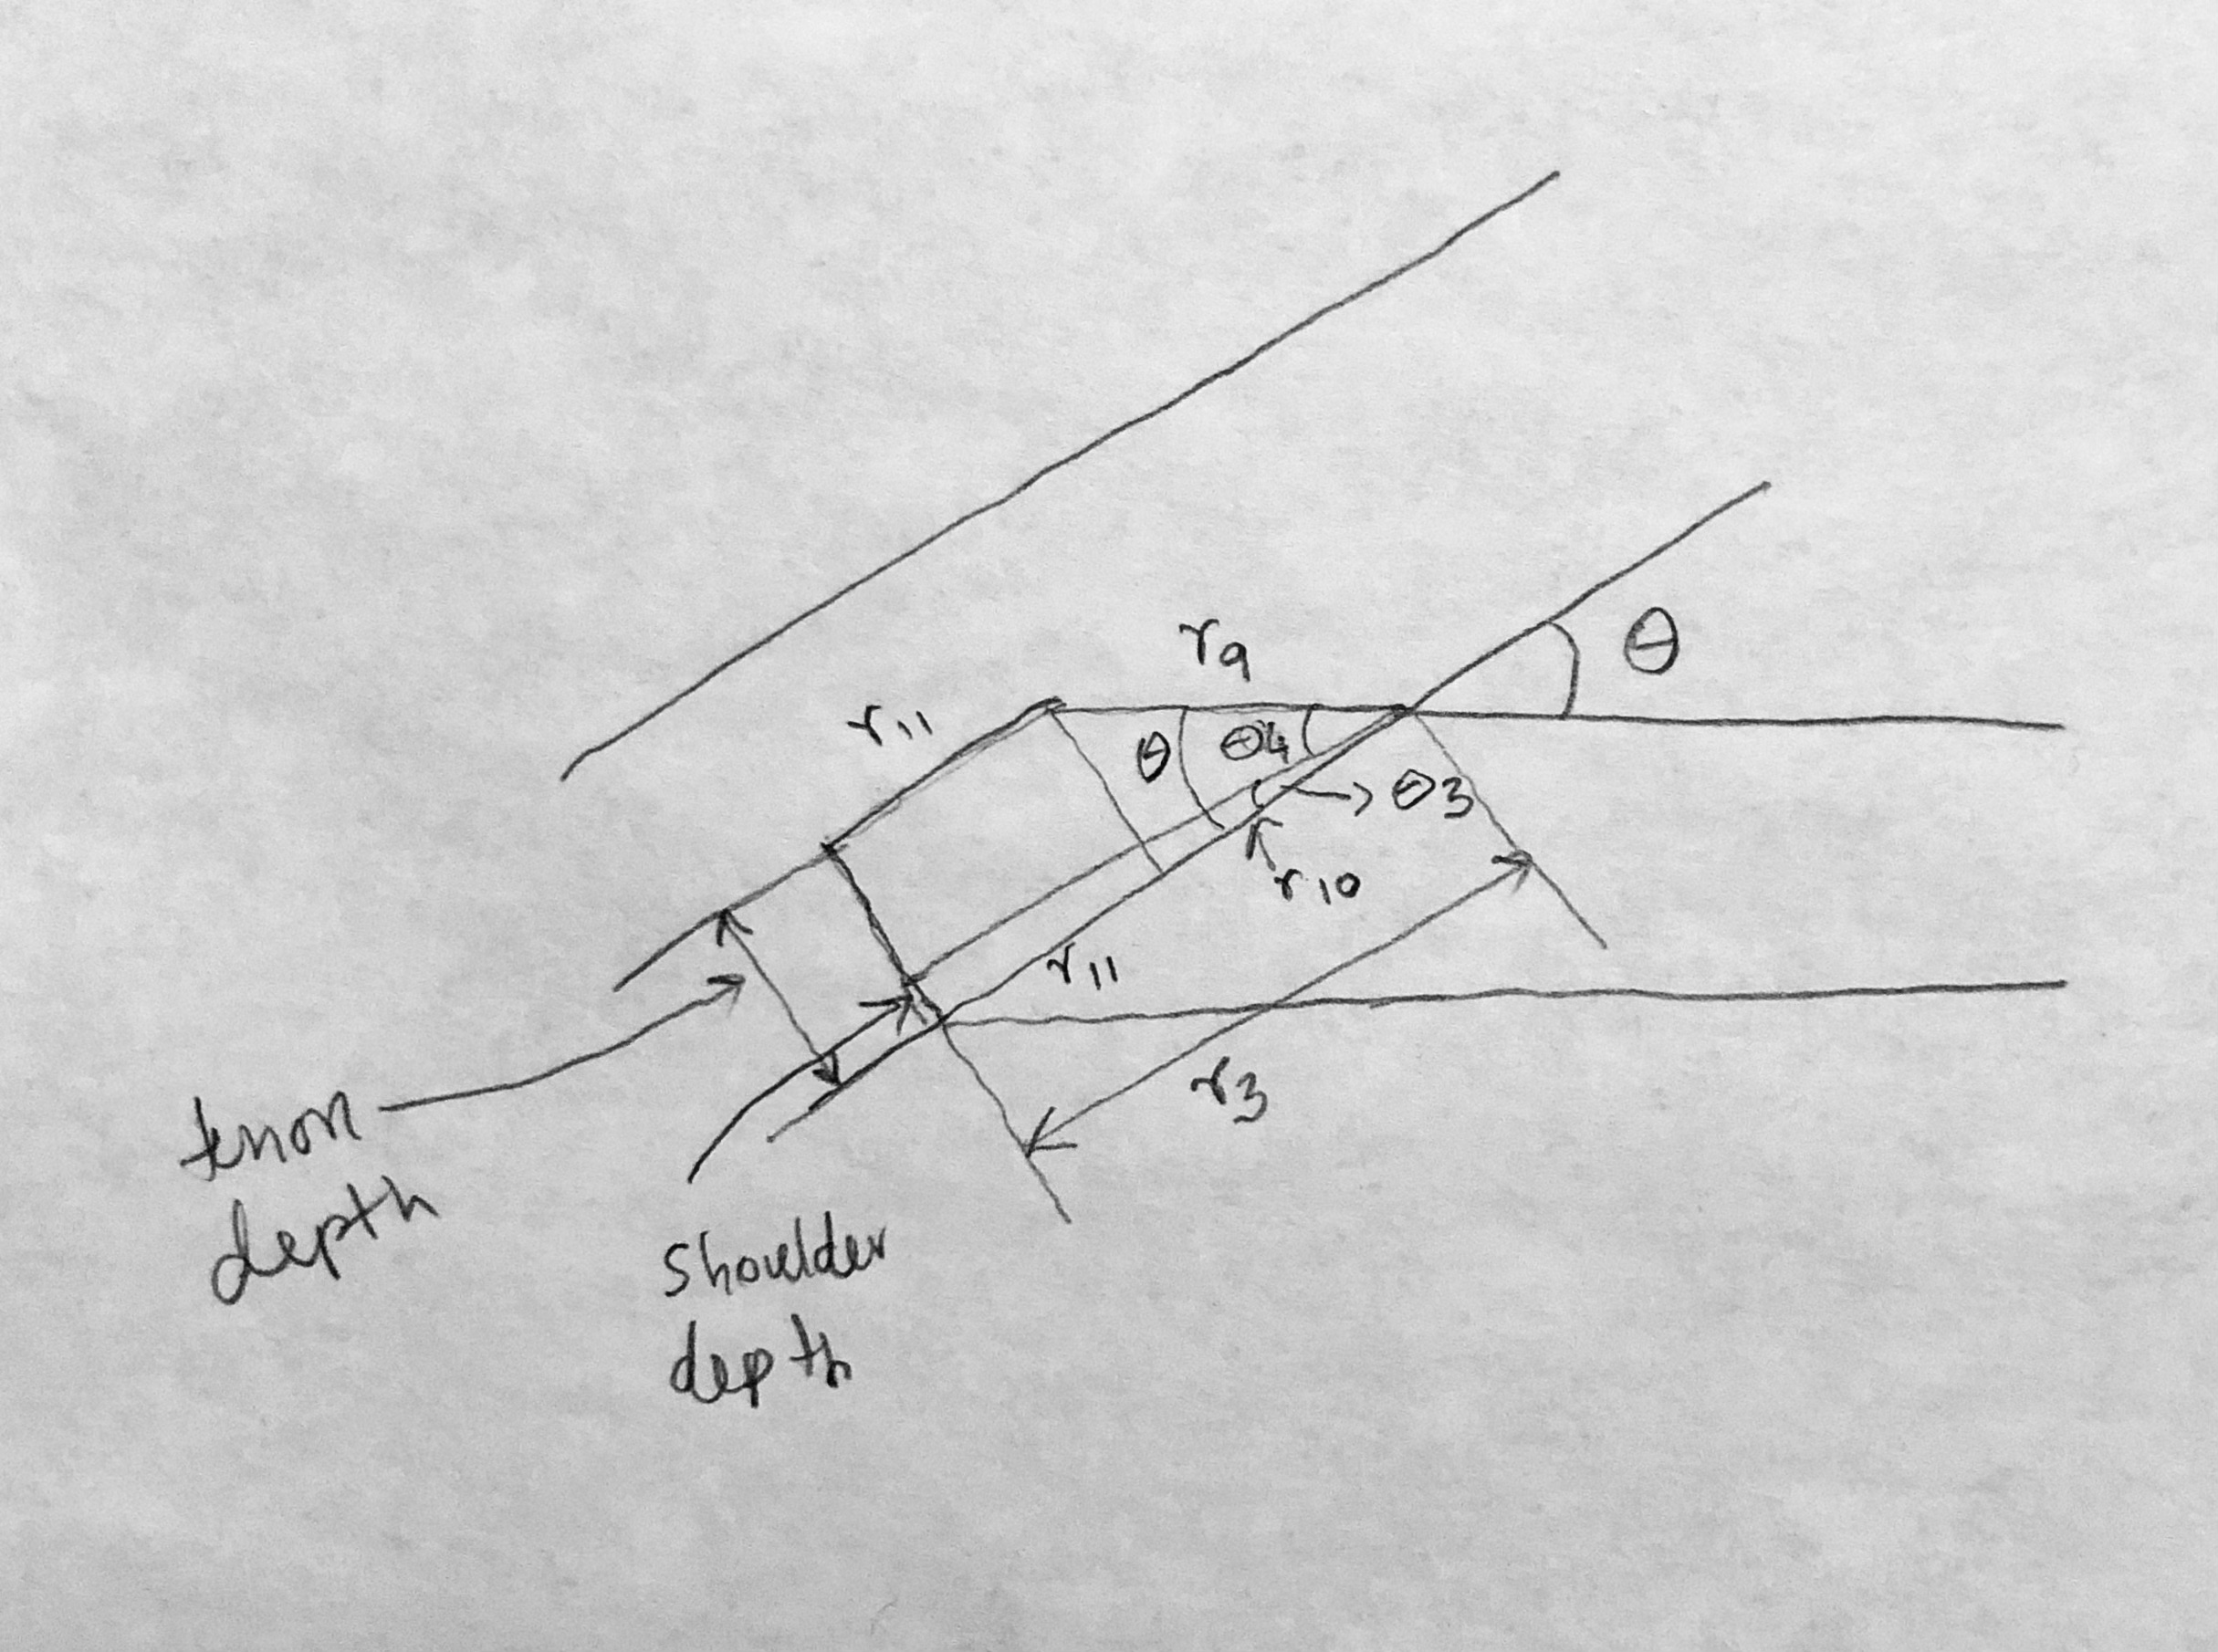 r9
θ
r11
θ
θ4
θ3
r10
r11
r3
tenon
depth
shoulder
depth